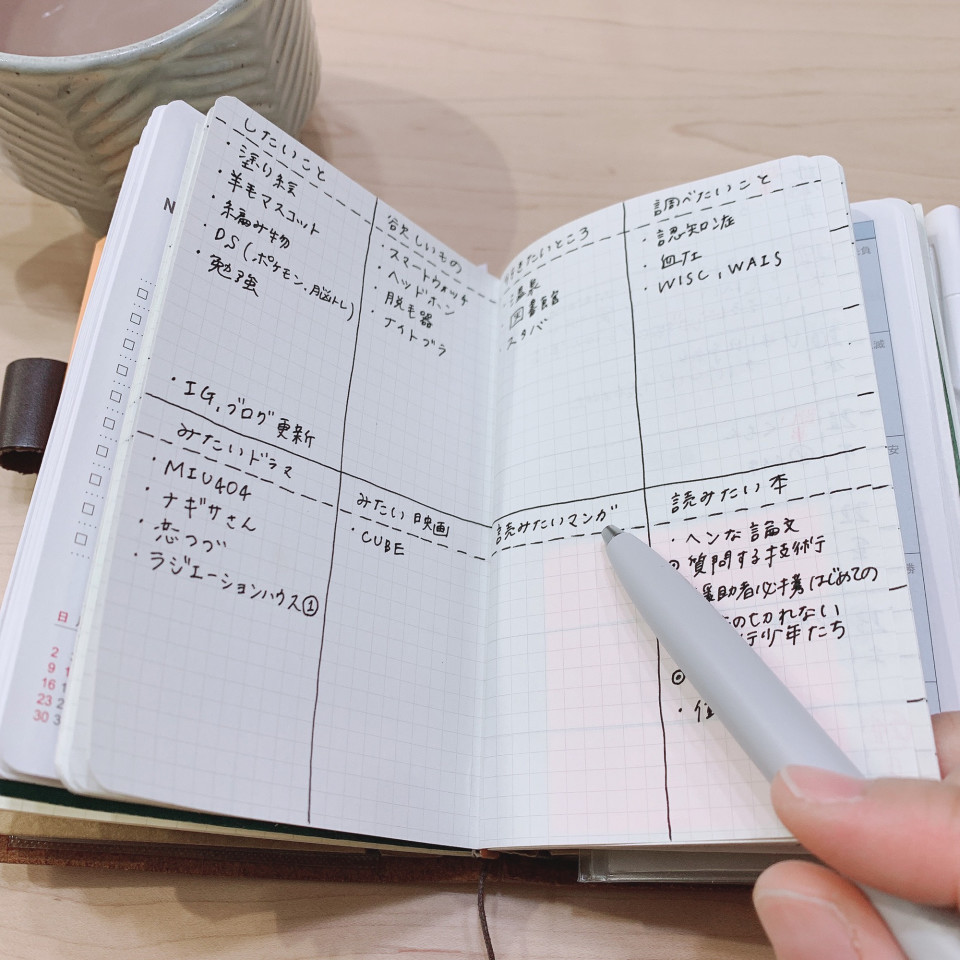 したいこと
・塗り絵
・羊毛マスコット
・編み物
・DS(ポケモン、脳トレ)
・勉強
・IG、ブログ更新
欲しいもの
・スマートウォッチ
・ヘッドホーン
・脱毛器
・ナイトブラ
行きたいところ
・温泉
・図書館
スタバ
調べたいこと
・認知症
・血圧
・WISC、WAIS
みたいドラマ
・MIU404
・ナギサさん
・恋つづ
・ラジエーションハウス①
みたい映画
・CUBE
読みたいマンガ
読みたい本
・ヘンな論文
質問する技術
援助者必携はじめての
の切れない
少年たち
◎
・
日
2
9
16
23
30